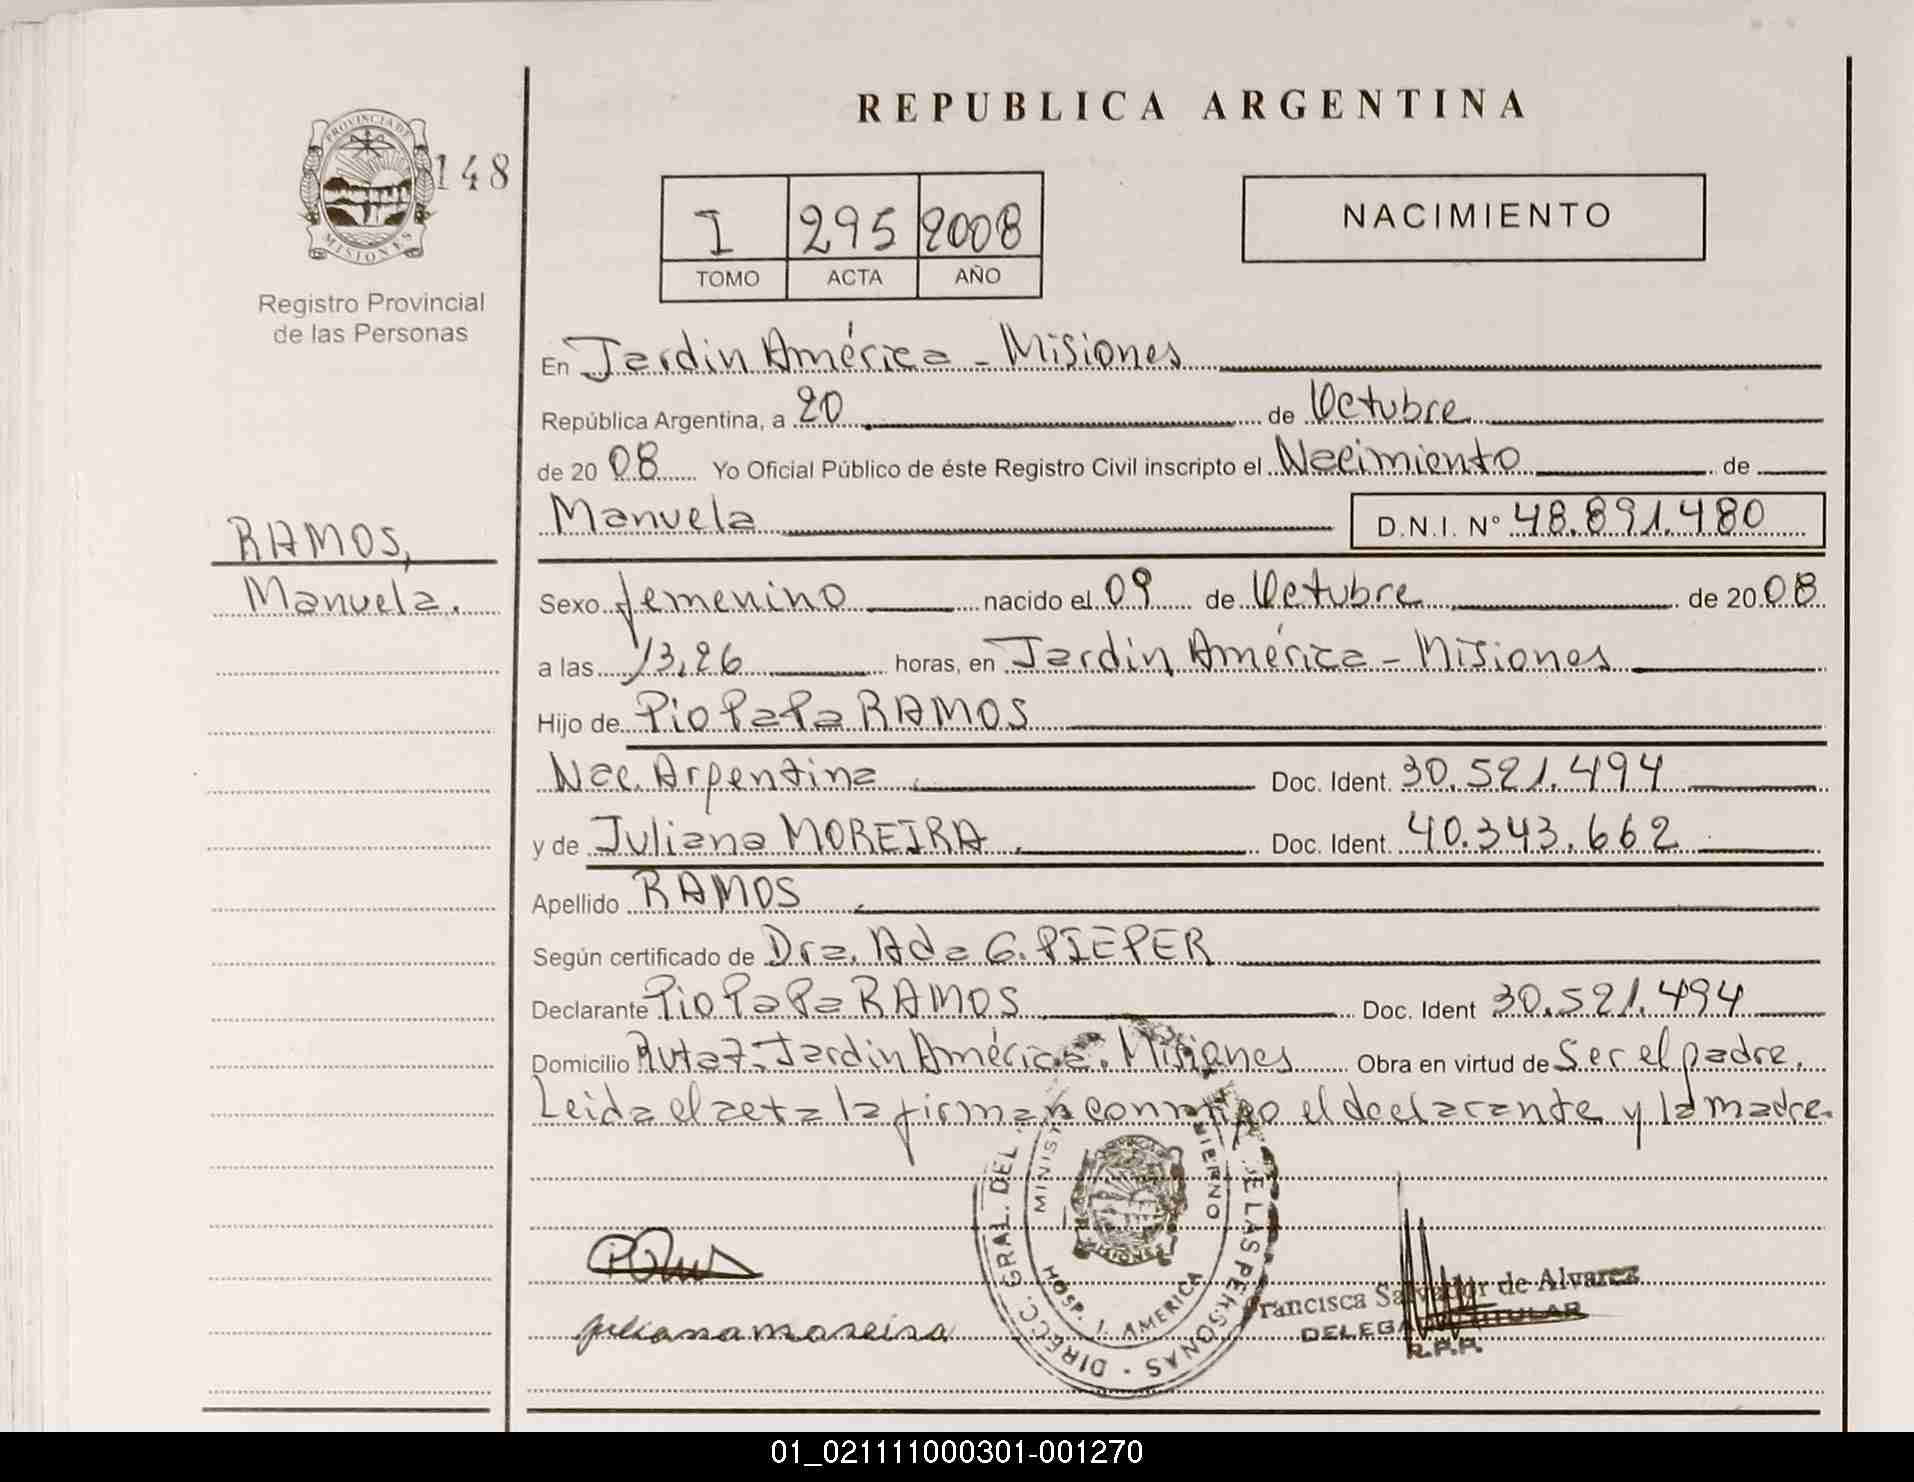 REPUBLICA ARGENTINA
PROVINCIA DE
MISIONES
148
Registro Provincial
de las Personas
I 295 2008
TOMO ACTA AÑO
NACIMIENTO
En Jardin América - Misiones
República Argentina, a 20 de Octubre
de 20 08 Yo Oficial Público de éste Registro Civil inscripto el Nacimiento de
Manuela D.N.I. N° 48.891.480
RAMOS,
Manuela.
Sexo femenino nacido el 09 de Octubre de 20 08
a las 13,26 horas, en Jardin América - Misiones
Hijo de Pio PaPa RAMOS
Nac. Argentina Doc. Ident. 30.521.494
y de Juliana MOREIRA Doc. Ident. 40.343.662
Apellido RAMOS
Según certificado de Dra. Ada G. PIEPER
Declarante Pio PaPa RAMOS Doc. Ident 30.521.494
Domicilio Ruta 7. Jardin América. Misiones Obra en virtud de Ser el padre.
Leida el acta la firman conmigo el declarante y la madre.
DIRECC. GRAL. DEL DE LAS PERSONAS
HOSP. J. AMERICA
MISIONES
juliana moreira
Francisca Salvador de Alvarez
DELEGADA TITULAR
R.P.P.
01_021111000301-001270